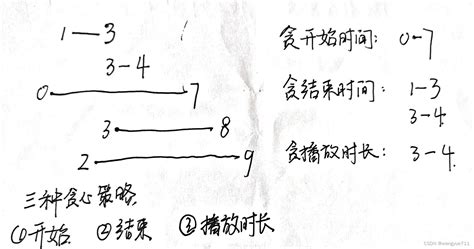 1—3
3—4
0—7
3—8
2—9
三种贪心策略
①开始 ②结束 ③播放时长
贪开始时间: 0-7
贪结束时间: 1-3
3-4
贪播放时长: 3-4